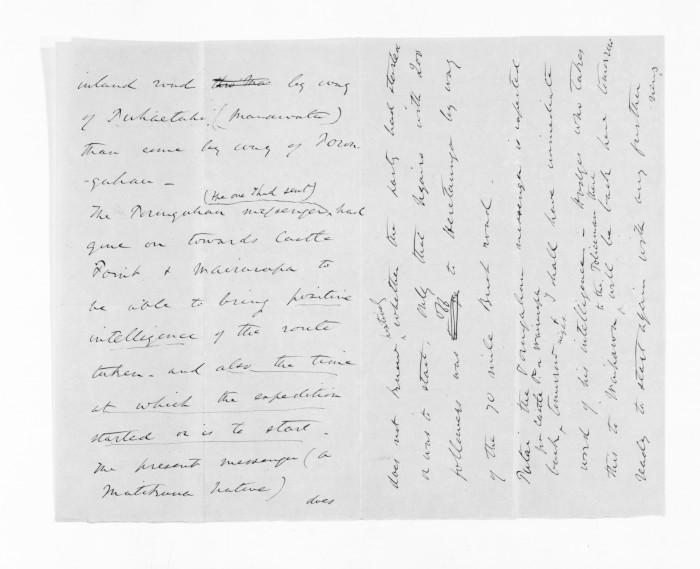 inland road this Ma by way
of Puhaetahi (Manawatu)
than come by way of Poron
-gahau -
(the one Thad sent)
The Porungahau messenger had
gone on towards Castle
Point & Wairarapa to
be able to bring positive
intelligence of the route
taken - and also the time
at which the expedition
started or is to start -
The present messenger (a
Matikuna Native)
does
does not know whether the party had started
or was to start. Only that Ngairo with 200
followers was off to Heretaunga by way
of the 70 mile Bush road -
the Porungahau messenger is expected
back tomorrow night & I shall have immediate
word of his intelligence - Hodges who takes
to the Policeman there
this to will be back here tomorrow
ready to start again with any further
news